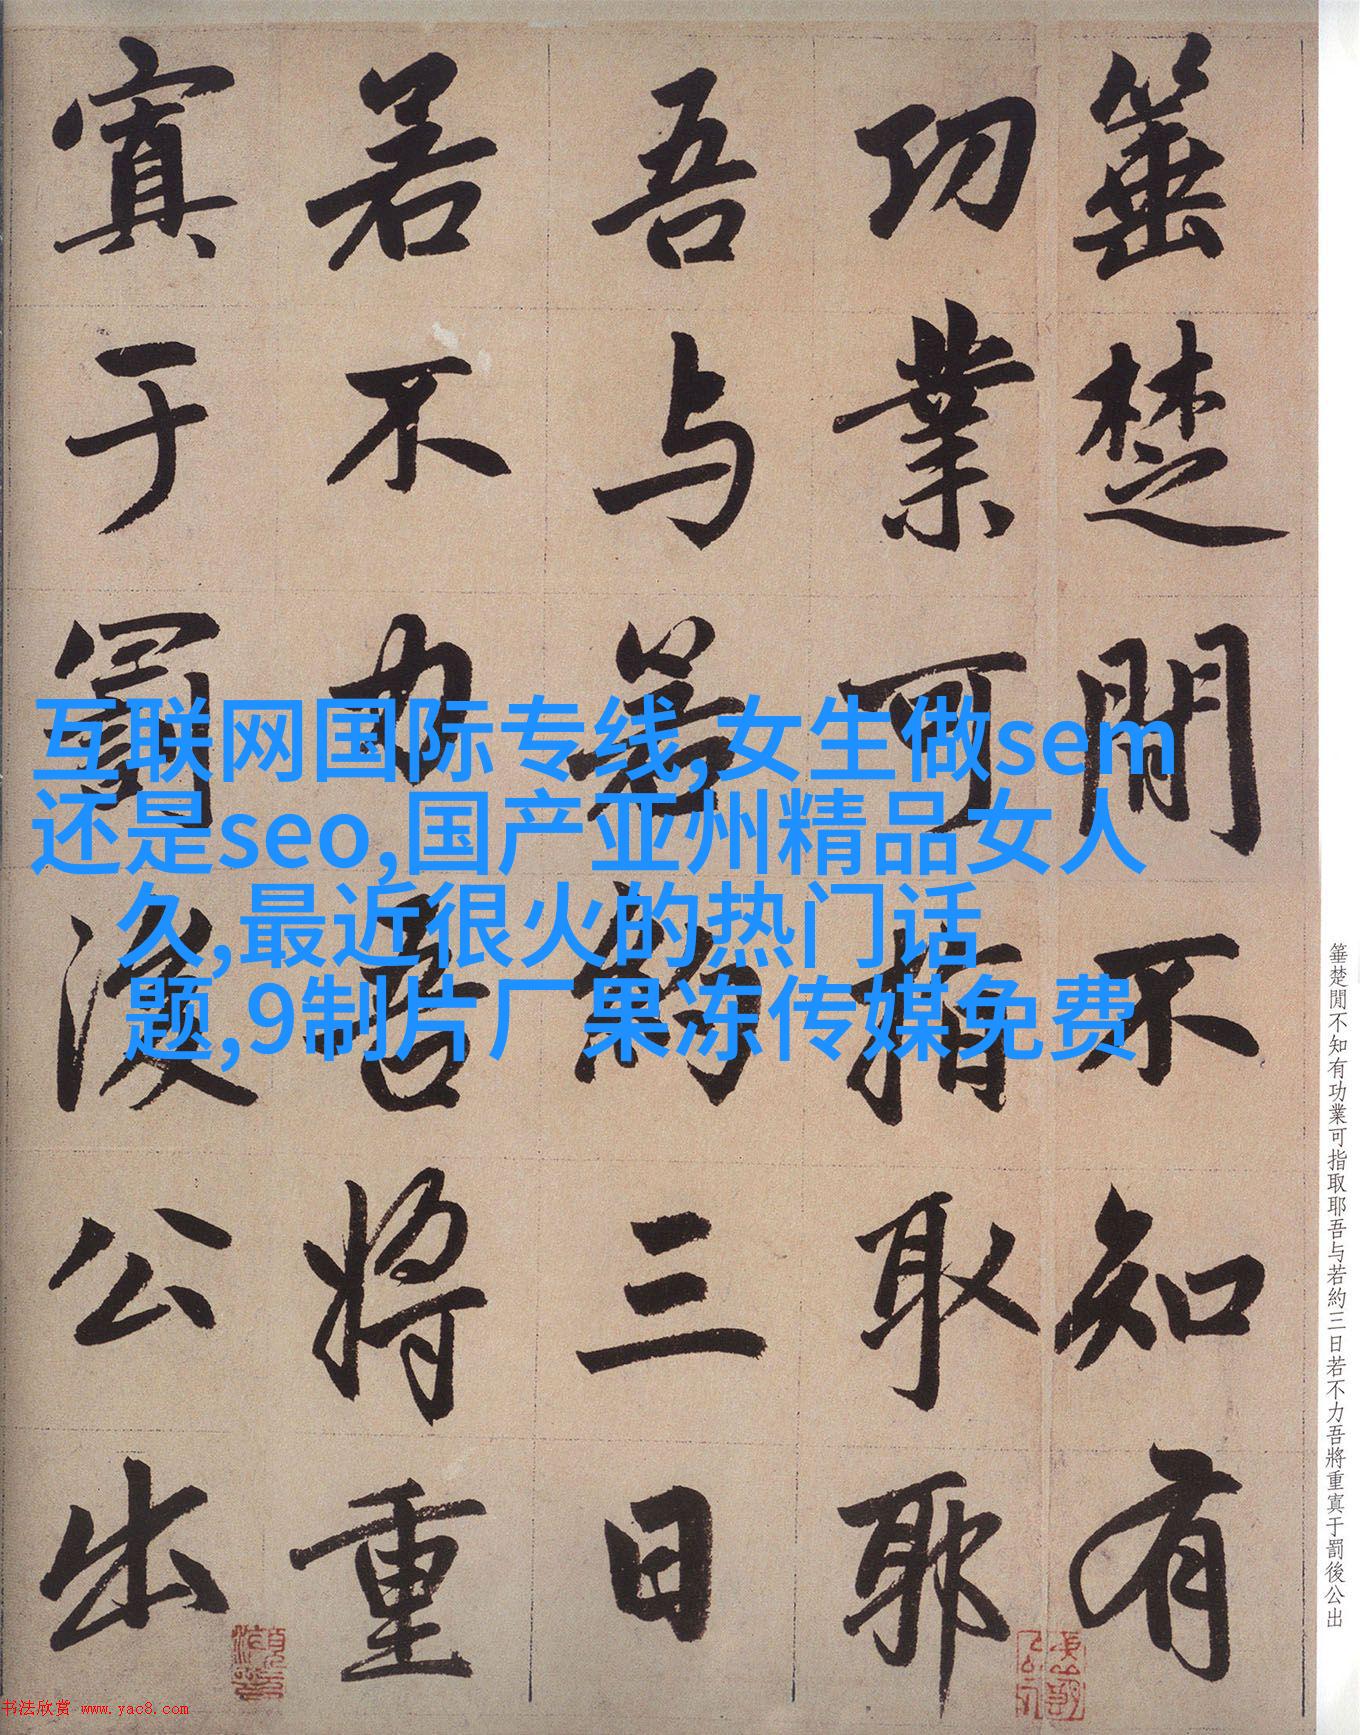 箠楚閒不知有
功業可指取耶
吾与若約三日
若不力吾將重
寘于罰後公出
互联网国际专线,女生做sem
还是seo,国产亚州精品女人
久,最近很火的热门话
题,9制片厂果冻传媒免费
箠楚閒不知有功業可指取耶吾与若約三日若不力吾將重寘于罰後公出
书法欣赏 www.yac8.com